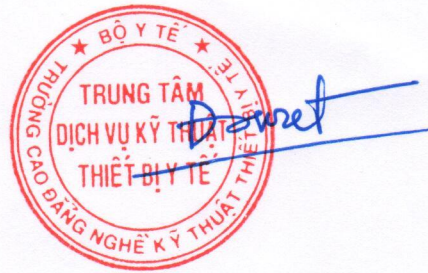 ★ BỘ Y TẾ ★
TRƯỜNG CAO ĐẲNG NGHỀ KỸ THUẬT THIẾT BỊ Y TẾ
TRUNG TÂM
DỊCH VỤ KỸ THUẬT
THIẾT BỊ Y TẾ